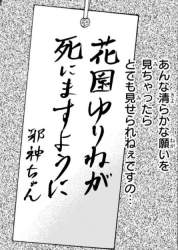 あんな清らかな願いを
見ちゃったら
とても見せられねぇですの…
花園ゆりねが
死にますように
邪神ちゃん